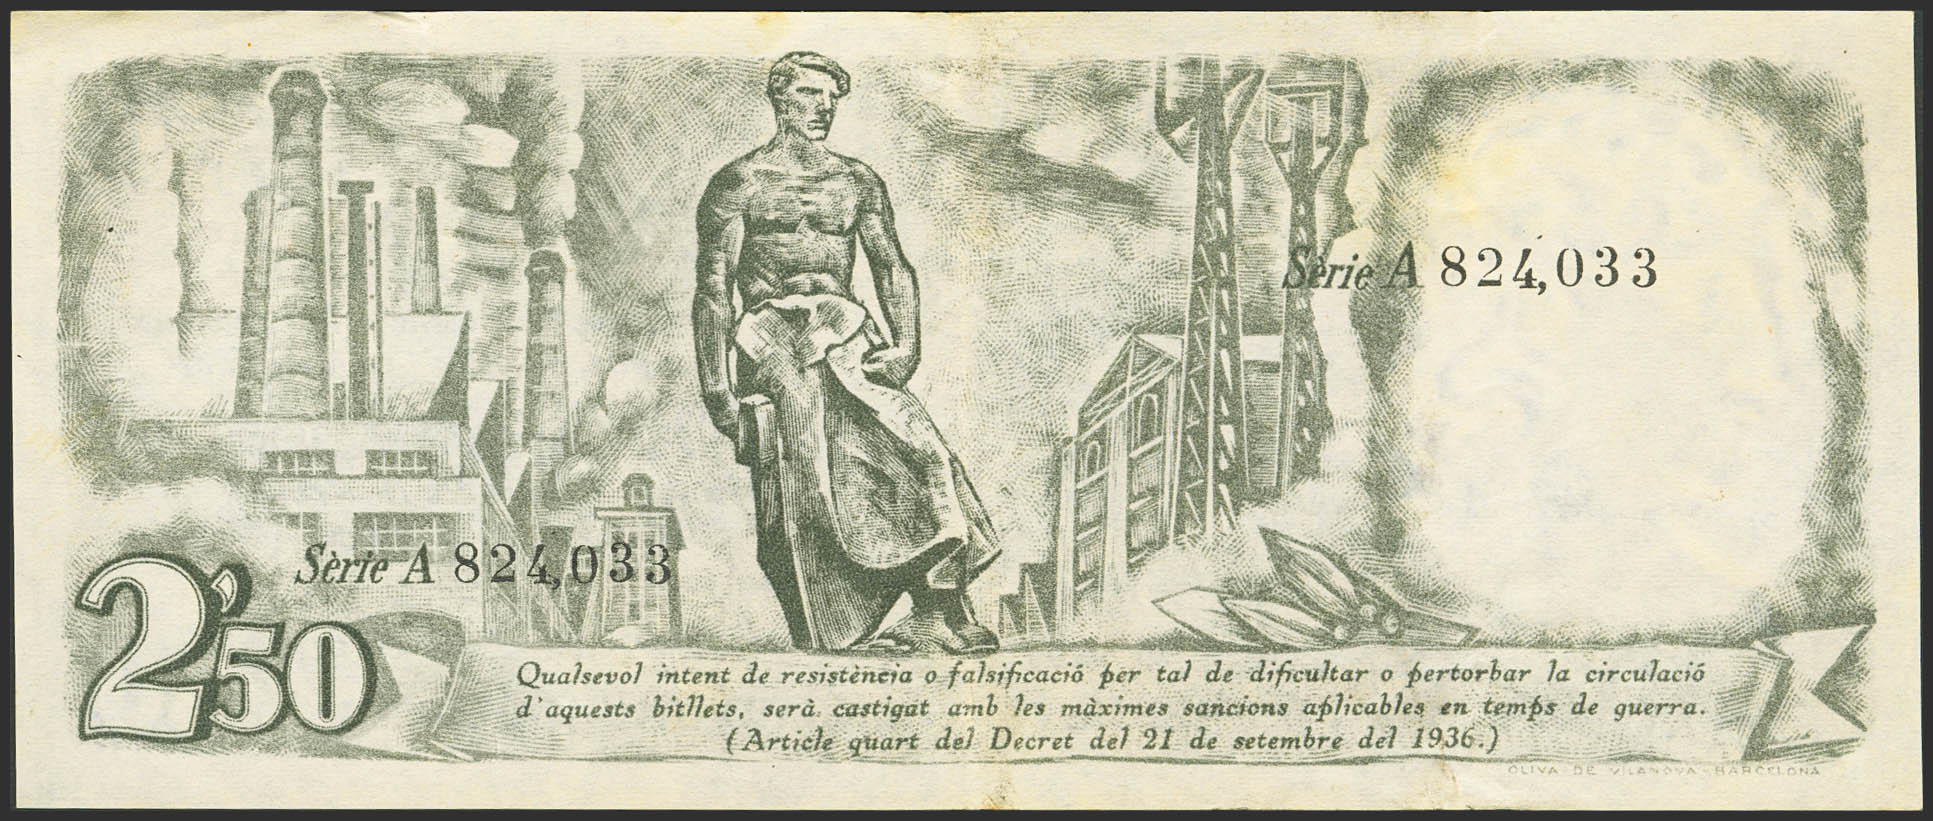 Sèrie A 824,033
Sèrie A 824,033
2'50
Qualsevol intent de resistència o falsificació per tal de dificultar o pertorbar la circulació
d'aquests bitllets, serà castigat amb les màximes sancions aplicables en temps de guerra.
(Article quart del Decret del 21 de setembre del 1936.)
OLIVA DE VILANOVA - BARCELONA